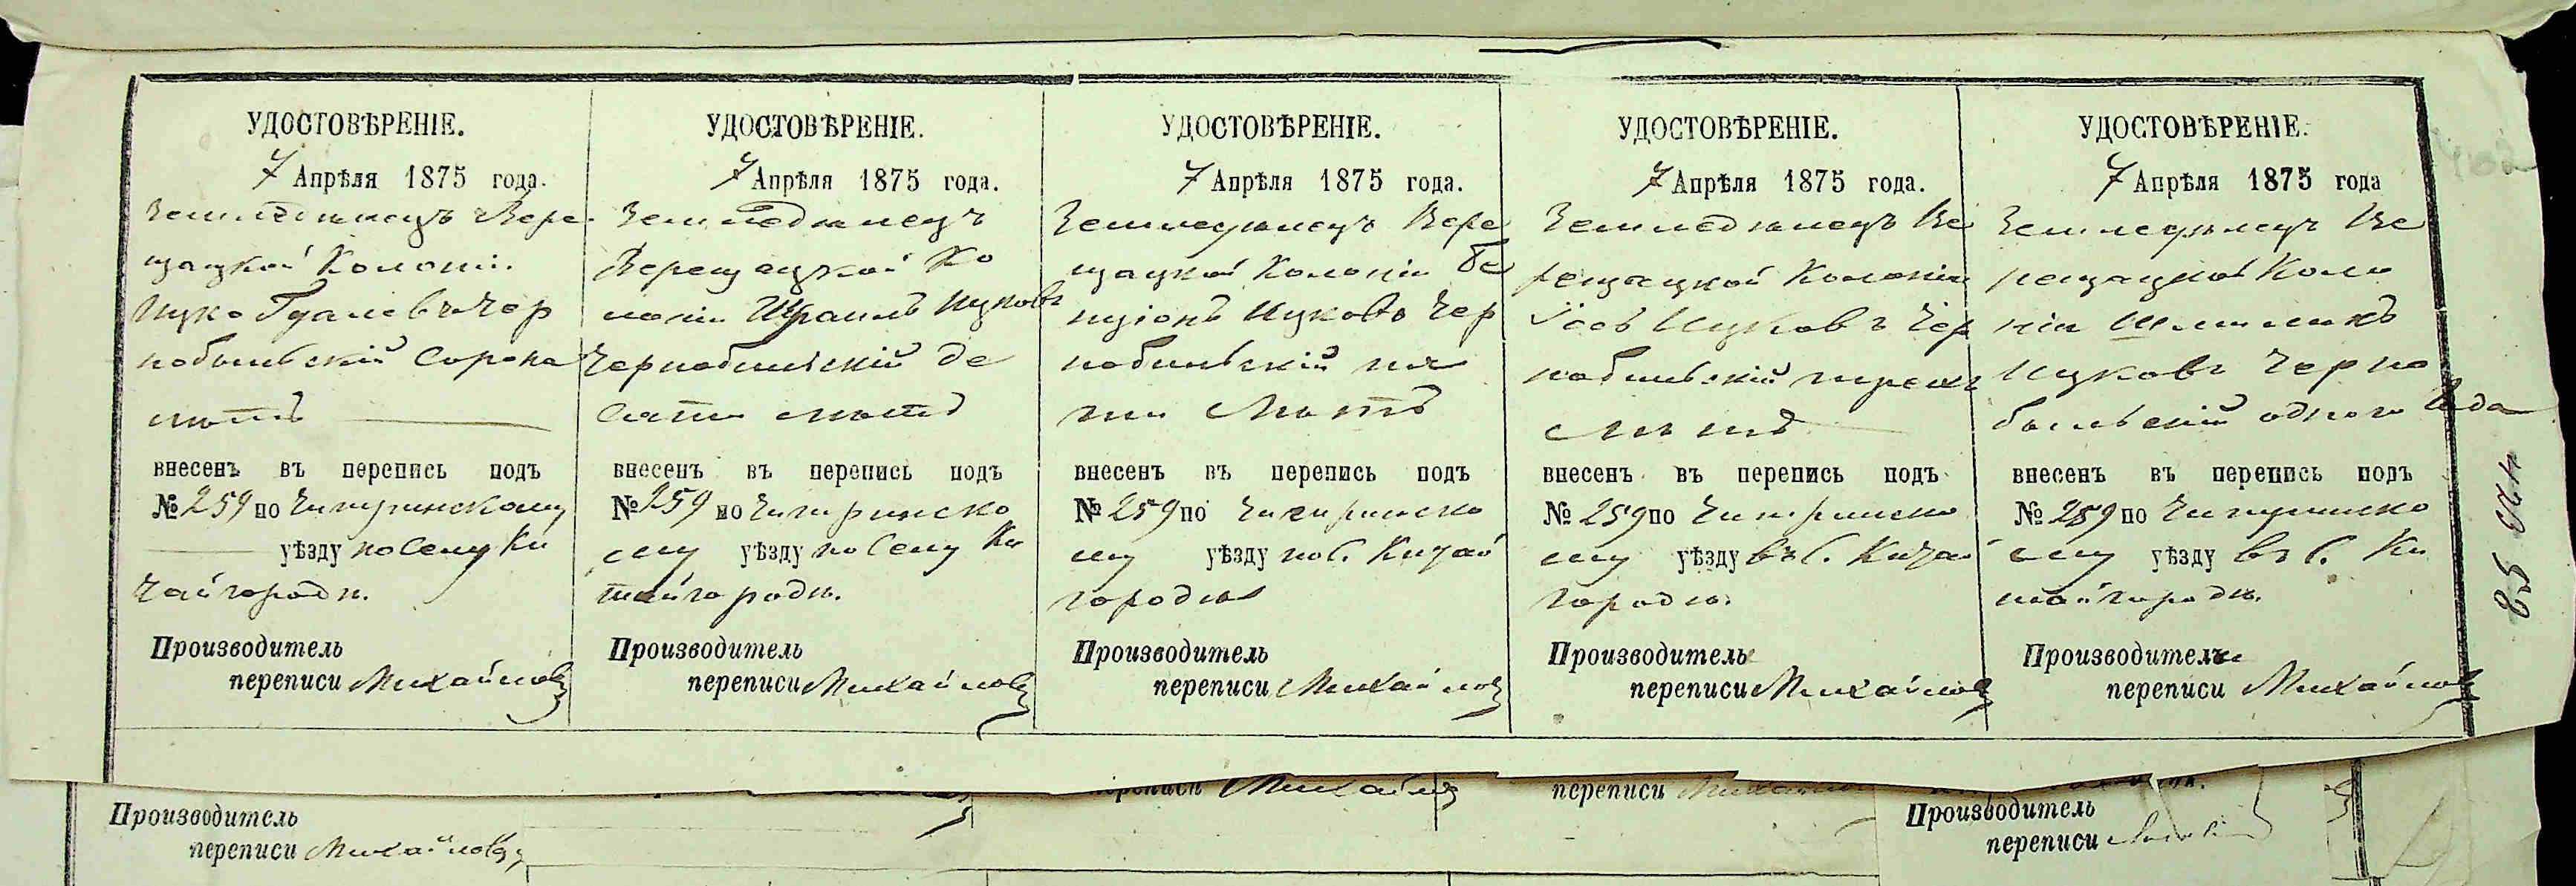 УДОСТОВѢРЕНІЕ.
7 Апрѣля 1875 года.
Земледѣлецъ Вере-
щацкой Колоніи
Ицко Гдалевъ Чер
нобыльскій Сорока
лѣтъ
внесенъ въ перепись подъ
№ 259 по Чигиринскому
уѣзду по Селу Ки
тайгородъ.
Производитель
переписи Михайловъ
УДОСТОВѢРЕНІЕ.
7 Апрѣля 1875 года.
Земледѣлецъ
Верещацкой Ко
лоніи Израиль Ицковъ
Чернобыльскій де
сяти лѣтъ
внесенъ въ перепись подъ
№ 259 по Чигиринско
му уѣзду по Селу Ки
тайгородъ.
Производитель
переписи Михайловъ
УДОСТОВѢРЕНІЕ.
7 Апрѣля 1875 года.
Земледѣлецъ Вере
щацкой Колоніи Бе
нціонъ Ицковъ Чер
нобыльскій пя
ти лѣтъ
внесенъ въ перепись подъ
№ 259 по Чигиринско
му уѣзду по С. Китай
городъ
Производитель
переписи Михайловъ
УДОСТОВѢРЕНІЕ.
7 Апрѣля 1875 года.
Земледѣлецъ Ве
рещацкой Колоніи
Ицковъ Чер
нобыльскій трехъ
лѣтъ
внесенъ въ перепись подъ
№ 259 по Чигиринско
му уѣзду въ С. Китай
городъ.
Производитель
переписи Михайловъ
УДОСТОВѢРЕНІЕ.
7 Апрѣля 1875 года
Земледѣлецъ Ве
рещацкой Коло
ніи
Ицковъ Черно
быльскій одного Года
внесенъ въ перепись подъ
№ 259 по Чигиринско
му уѣзду въ С. Ки
тайгородъ.
Производитель
переписи Михайловъ
Производитель
переписи Михайловъ
переписи Михайловъ
переписи Михайловъ
Производитель
переписи